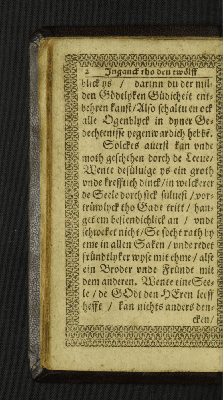 2 Jnganck tho den twölff
blick ys / darinn du der mil-
den Gödtlyken Güdicheit ent-
behren kanst / Also schaltu en ock
alle Ogenblyck in dyner Ge-
dechtenisse yegenwardich hebbē.
Solckes auerst kan vnde
moth geschehen dorch de Leeue /
Wente desüluige ys ein groth
vnde krefftich dinck / in welckerer
de Seele dorch sick süluest / vor-
trüwlyck tho Gade tritt / han-
get em bestendichlick an / vnde
schrocket nicht / Se socht rath by
eme in allen Saken / vnde redet
fründtlyker wyse mit ehme / alse
ein Broder vnde Fründe mit
dem anderen. Wente eine See-
le / de GOdt den HEren leeff
hefft / kan nichts anders den-
cken /